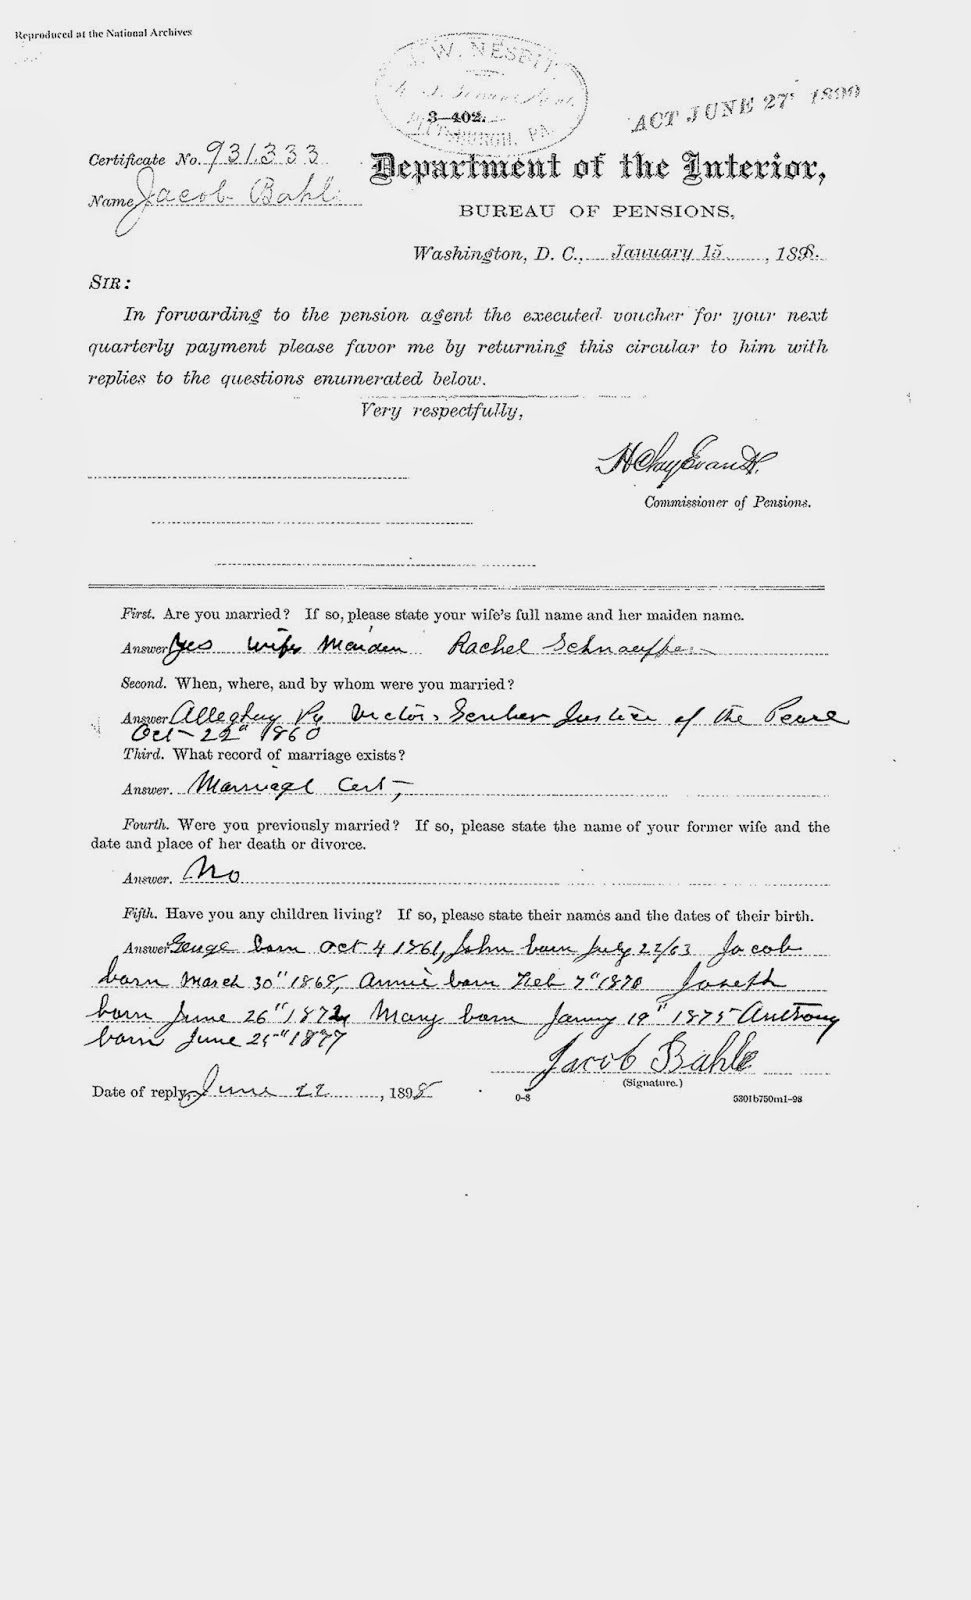 Reproduced at the National Archives
J. W. NESBIT.
U. S. Pension Agent
3-402.
PITTSBURGH, PA.
ACT JUNE 27 1890
Certificate No. 931333
Department of the Interior,
Name Jacob Bahl
BUREAU OF PENSIONS,
Washington, D. C., January 15, 1898.
SIR:
In forwarding to the pension agent the executed voucher for your next
quarterly payment please favor me by returning this circular to him with
replies to the questions enumerated below.
Very respectfully,
H Clay Evans
Commissioner of Pensions.
First. Are you married? If so, please state your wife's full name and her maiden name.
Answer Yes Wifes Maiden Rachel
Second. When, where, and by whom were you married?
Answer Allegheny Pa Victor Justice of the Peace
Oct- 22" 1860
Third. What record of marriage exists?
Answer. Marriage Cert,
Fourth. Were you previously married? If so, please state the name of your former wife and the
date and place of her death or divorce.
Answer. No
Fifth. Have you any children living? If so, please state their names and the dates of their birth.
Answer George born Oct 4 1861, John born July 22/63 Jacob
born March 30" 1868, Annie born Feb 7" 1870 Joseph
born June 26" 1872, Mary born Janny 19" 1875 Anthony
born June 25" 1877
Jacob Bahle
(Signature.)
Date of reply, June 22, 1898
0-8
5301b750m1-98